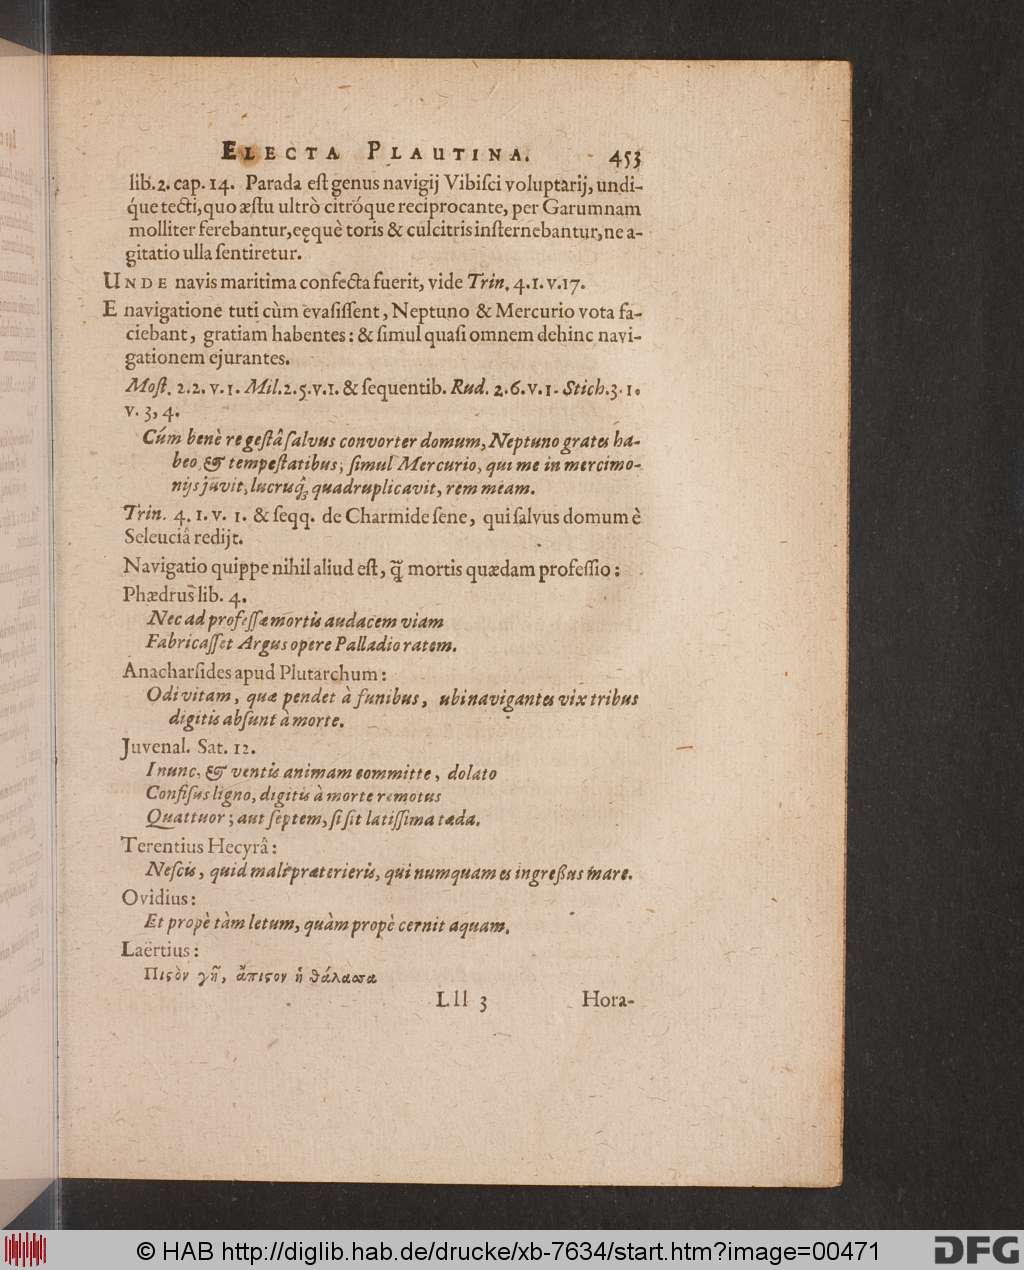 ELECTA PLAUTINA. 453
lib. 2. cap. 14. Parada eſt genus navigij Vibiſci voluptarij, undi-
q́ue tecti, quo æſtu ultrò citróque reciprocante, per Garumnam
molliter ferebantur, eęquè toris & culcitris inſternebantur, ne a-
gitatio ulla ſentiretur.
UNDE navis maritima confecta fuerit, vide Trin. 4. 1. v. 17.
E navigatione tuti cùm evaſiſſent, Neptuno & Mercurio vota fa-
ciebant, gratiam habentes: & ſimul quaſi omnem dehinc navi-
gationem ejurantes.
Moſt. 2. 2. v. 1. Mil. 2. 5. v. 1. & ſequentib. Rud. 2. 6. v. 1. Stich. 3. 1.
v. 3, 4.
Cúm benè re geſtâ ſalvus convorter domum, Neptuno grates ha-
beo & tempeſtatibus; ſimul Mercurio, qui me in mercimo-
nijs juvit, lucruq́; quadruplicavit, rem meam.
Trin. 4. 1. v. 1. & ſeqq. de Charmide ſene, qui ſalvus domum è
Seleuciâ redijt.
Navigatio quippe nihil aliud eſt, q̃ mortis quædam profeſſio:
Phædrus lib. 4.
Nec ad profeſſæ mortis audacem viam
Fabricaſſet Argus opere Palladio ratem.
Anacharſides apud Plutarchum:
Odi vitam, quæ pendet à funibus, ubi navigantes vix tribus
digitis abſunt à morte.
Juvenal. Sat. 12.
I nunc, & ventis animam committe, dolato
Confiſus ligno, digitis à morte remotus
Quattuor; aut ſeptem, ſi ſit latiſſima tæda.
Terentius Hecyrâ:
Neſcis, quid mali præterieris, qui numquam es ingreßus mare.
Ovidius:
Et propè tàm letum, quàm propè cernit aquam.
Laërtius:
Πιϛὸν γῆ, ἄπιϛον ἡ θάλασσα
Lll 3 Hora-
© HAB http://diglib.hab.de/drucke/xb-7634/start.htm?image=00471 DFG